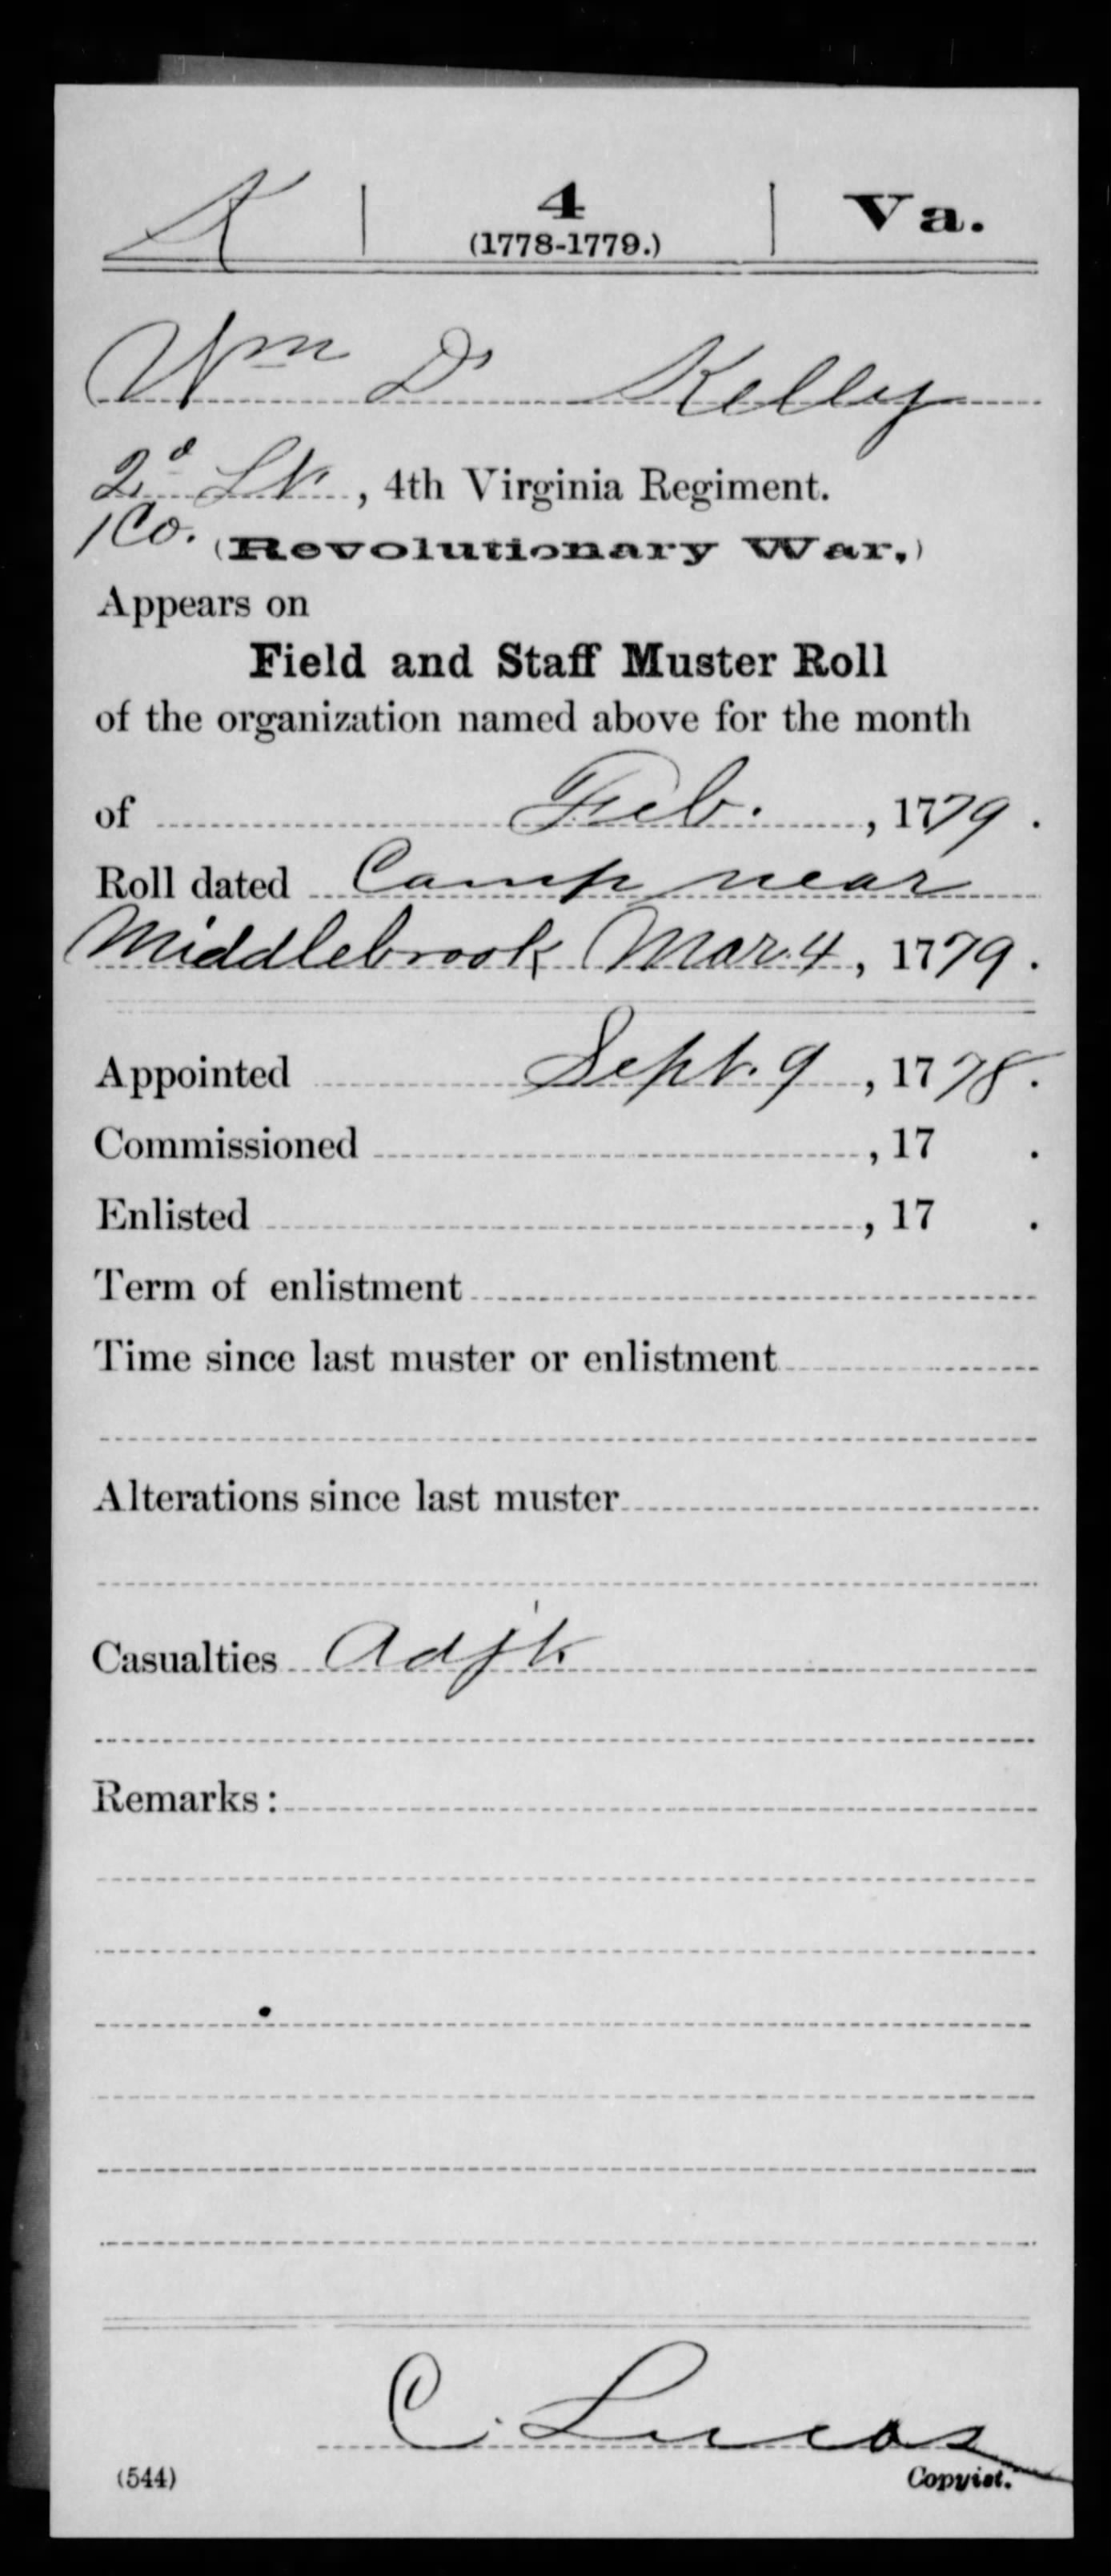 K | 4 | Va.
(1778-1779.)
Wm D. Kelly
2d Lt., 4th Virginia Regiment.
1 Co. (Revolutionary War.)
Appears on
Field and Staff Muster Roll
of the organization named above for the month
of Feb., 1779.
Roll dated Camp near
Middlebrook Mar. 4, 1779.
Appointed Sept. 9, 1778.
Commissioned , 17 .
Enlisted , 17 .
Term of enlistment
Time since last muster or enlistment
Alterations since last muster
Casualties Adjt
Remarks:
C. Lucas
(544) Copyist.